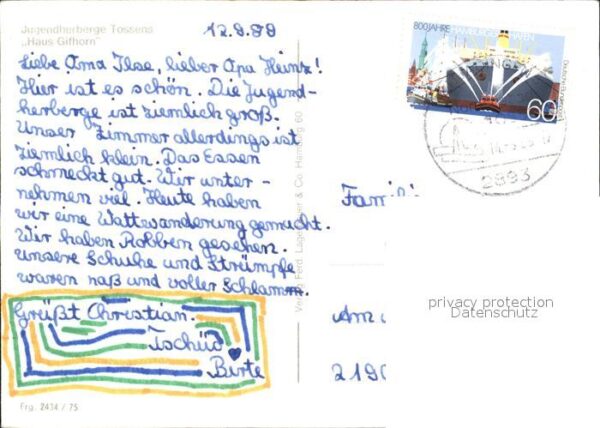 Jugendherberge Tossens
„Haus Gifhorn"
12.9.89
Liebe Oma Ilse, lieber Opa Heinz!
Hier ist es schön. Die Jugend-
herberge ist ziemlich groß.
Unser Zimmer allerdings ist
ziemlich klein. Das Essen
schmeckt gut. Wir unter-
nehmen viel. Heute haben
wir eine Wattwanderung gemacht.
Wir haben Robben gesehen.
Unsere Schuhe und Strümpfe
waren naß und voller Schlamm.
Grüßt Christian.
Tschüß
Birte
Frg. 2434 / 75
Verlag Ferd. & Co. Hamburg 60
800 JAHRE HAMBURGER HAFEN
Deutsche Bundespost
60
2893
Famili
Am
2190
privacy protection
Datenschutz